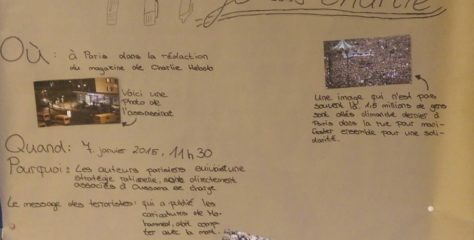 Je suis Charlie
Où : à Paris dans la rédaction
du magazine de Charlie Hebdo
Voici une
Photo de
l'assassinat
Une image qui n'est pas
souvent là. 1.5 millions de gens
sont allés dimanche dernier à
Paris dans la rue pour mani-
fester ensemble pour une soli-
darité.
Quand : 7. janvier 2015, 11h30
Pourquoi : Les auteurs parisiens suivent une
stratégie rationelle, sans directement
associés à Oussama se charge
Le message des terroristes : qui a publié les
caricatures de Mo-
hammed, doit comp-
ter avec la mort.